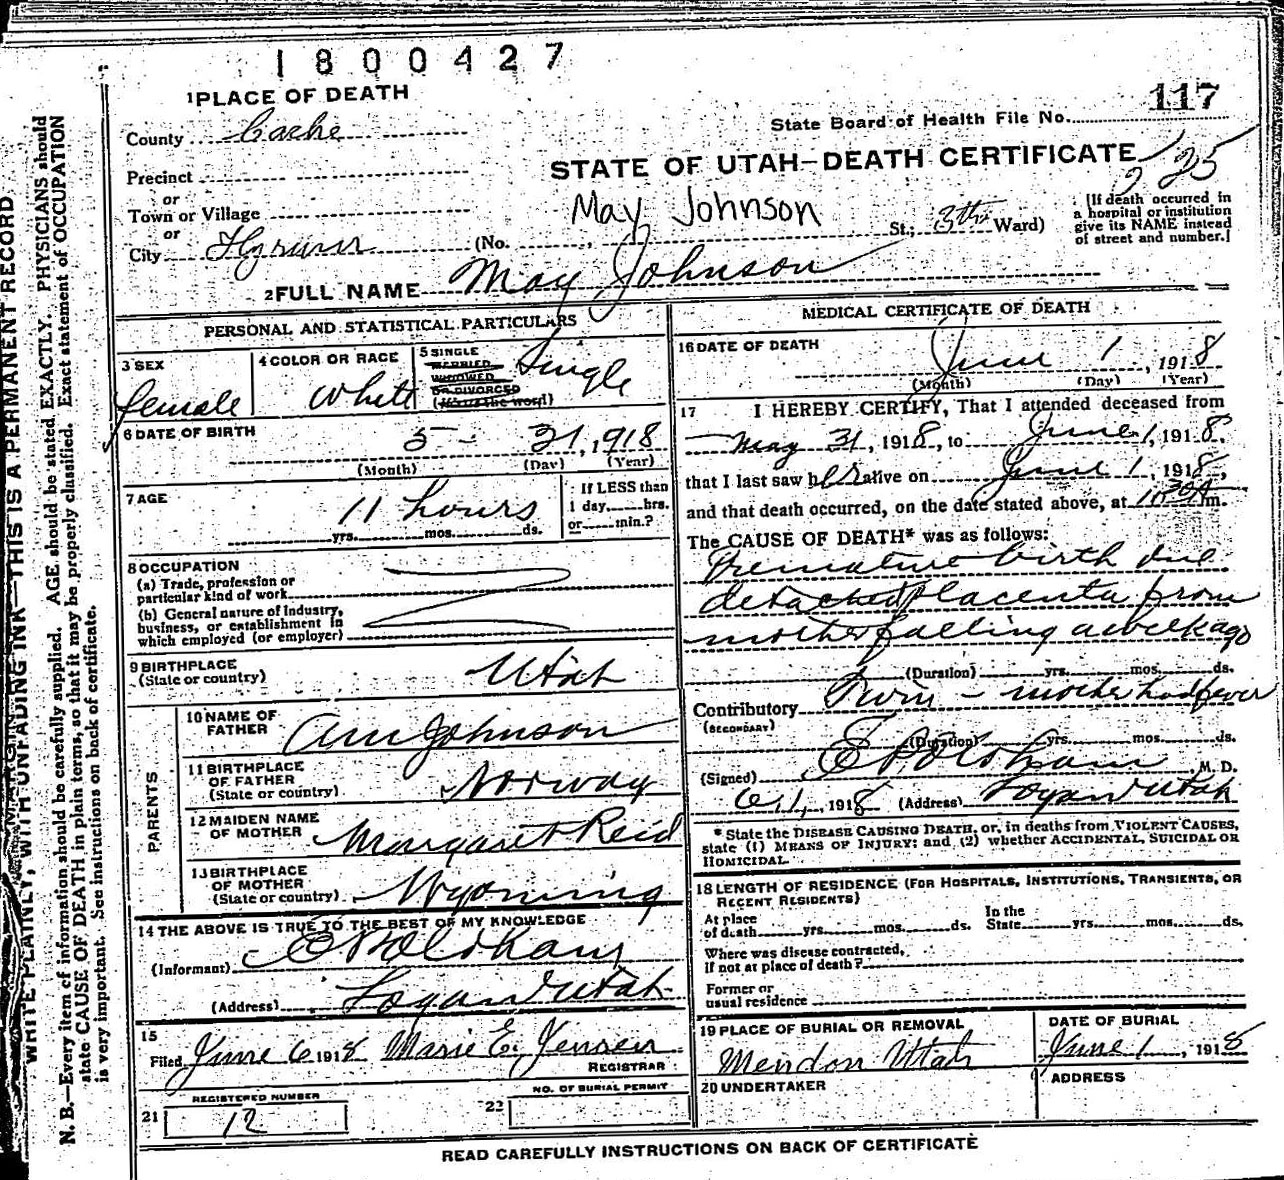 1800427
1 PLACE OF DEATH
117
County Cache
State Board of Health File No.
STATE OF UTAH—DEATH CERTIFICATE
Precinct
or
Town or Village
May Johnson
or
City Hyrum (No. St.; 3th Ward)
[If death occurred in
a hospital or institution
give its NAME instead
of street and number.]
2 FULL NAME May Johnson
PERSONAL AND STATISTICAL PARTICULARS
3 SEX
female
4 COLOR OR RACE
White
5 SINGLE
MARRIED
WIDOWED
OR DIVORCED
(Write the word)
Single
6 DATE OF BIRTH
5 - 31, 1918
(Month) (Day) (Year)
7 AGE
11 hours
yrs. mos. ds.
If LESS than
1 day, hrs.
or min.?
8 OCCUPATION
(a) Trade, profession or
particular kind of work
(b) General nature of Industry,
business, or establishment in
which employed (or employer)
9 BIRTHPLACE
(State or country)
Utah
PARENTS
10 NAME OF
FATHER
Johnson
11 BIRTHPLACE
OF FATHER
(State or country)
Norway
12 MAIDEN NAME
OF MOTHER
Margaret Reid
13 BIRTHPLACE
OF MOTHER
(State or country)
Wyoming
14 THE ABOVE IS TRUE TO THE BEST OF MY KNOWLEDGE
(Informant)
(Address) Logan Utah
15
Filed June 6 1918 Marie E. Jensen
REGISTRAR
REGISTERED NUMBER
21 12
NO. OF BURIAL PERMIT
22
MEDICAL CERTIFICATE OF DEATH
16 DATE OF DEATH
June 1, 1918
(Month) (Day) (Year)
17 I HEREBY CERTIFY, That I attended deceased from
May 31, 1918, to June 1, 1918.
that I last saw her alive on June 1, 1918,
and that death occurred, on the date stated above, at m.
The CAUSE OF DEATH* was as follows:
Premature birth due
detached placenta from
mother falling a week ago
(Duration) yrs. mos. ds.
Contributory Twin - mother had fever
(SECONDARY)
(Duration) yrs. mos. ds.
(Signed) M. D.
6, 1, 1918 (Address) Logan Utah
* State the DISEASE CAUSING DEATH, or, in deaths from VIOLENT CAUSES,
state (1) MEANS OF INJURY; and (2) whether ACCIDENTAL, SUICIDAL OR
HOMICIDAL.
18 LENGTH OF RESIDENCE (FOR HOSPITALS, INSTITUTIONS, TRANSIENTS, OR
RECENT RESIDENTS)
At place
of death yrs. mos. ds.
In the
State yrs. mos. ds.
Where was disease contracted,
if not at place of death?
Former or
usual residence
19 PLACE OF BURIAL OR REMOVAL
Mendon Utah
DATE OF BURIAL
June 1, 1918
20 UNDERTAKER
ADDRESS
READ CAREFULLY INSTRUCTIONS ON BACK OF CERTIFICATE
WRITE PLAINLY, WITH UNFADING INK—THIS IS A PERMANENT RECORD
N. B.—Every item of information should be carefully supplied. AGE should be stated EXACTLY. PHYSICIANS should
state CAUSE OF DEATH in plain terms, so that it may be properly classified. Exact statement of OCCUPATION
is very important. See instructions on back of certificate.